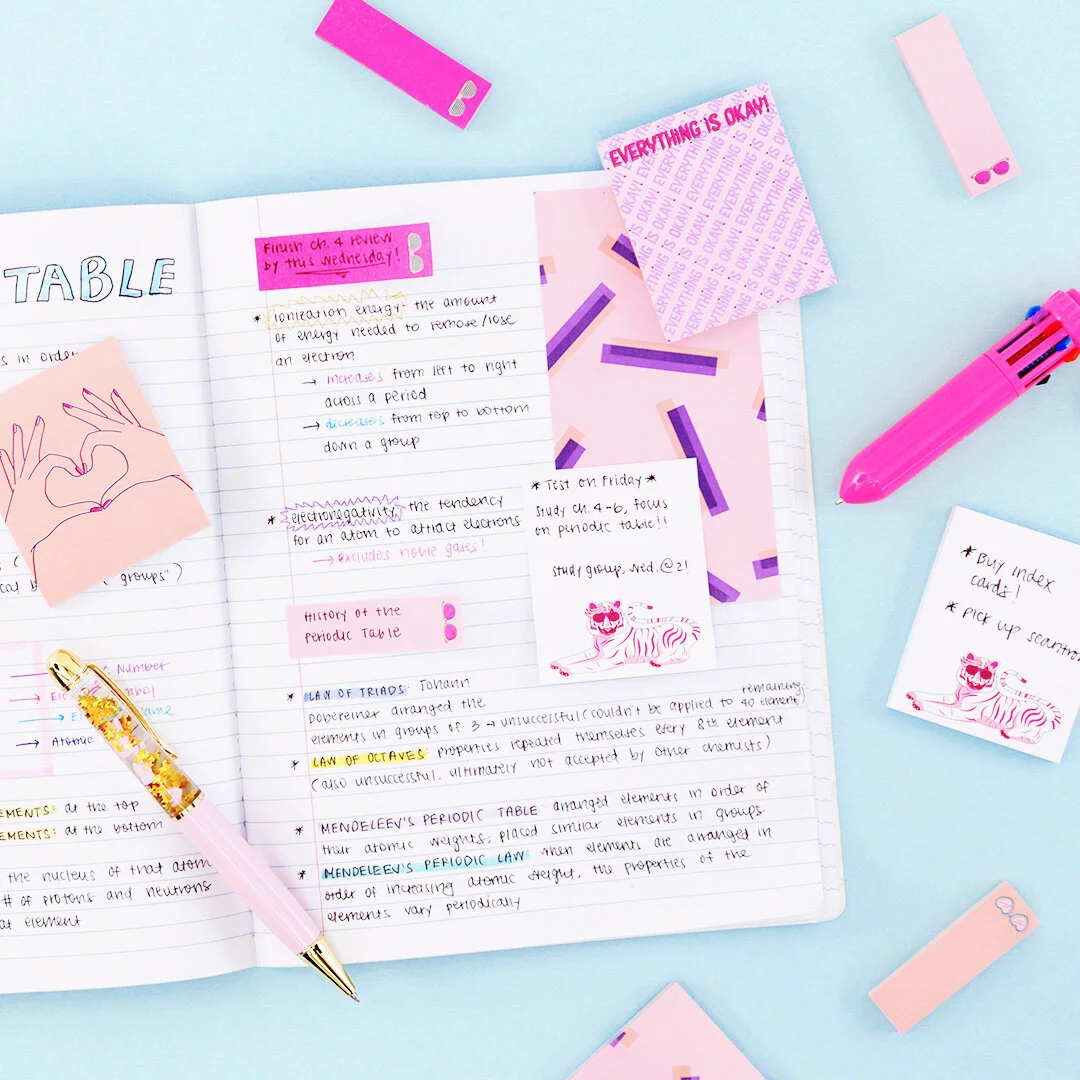 TABLE
s in order
groups")
Number
Atomic
EMENTS: at the top
EMENTS: at the bottom
the nucleus of that atom
# of protons and neutrons
at element
Finish ch. 4 review
by this wednesday!
* ionization energy: the amount
of energy needed to remose/lose
an electron
→ increases from left to right
across a period
→ decreases from top to bottom
down a group
* electronegativity: the tendency
for an atom to attract electrons
→ excludes noble gases!
History of the
Periodic Table
* LAW OF TRIADS: Johann
Dobereiner arranged the
remaining
elements in groups of 3 → unsuccessful (couldn't be applied to 40 element)
* LAW OF OCTAVES: properties repeated themselves every 8th element
(also unsuccessful, ultimately not accepted by other chemists)
* MENDELEEV'S PERIODIC TABLE: arranged elements in order of
their atomic weights, placed similar elements in groups
* MENDELEEV'S PERIODIC LAW: when elements are arranged in
order of increasing atomic weight, the properties of the
elements vary periodically
EVERYTHING IS OKAY!
EVERYTHING IS OKAY!
* Test on Friday *
Study ch. 4-6, focus
on periodic table!!
study group, wed. @ 2!
* Buy index
cards!
* pick up scantro